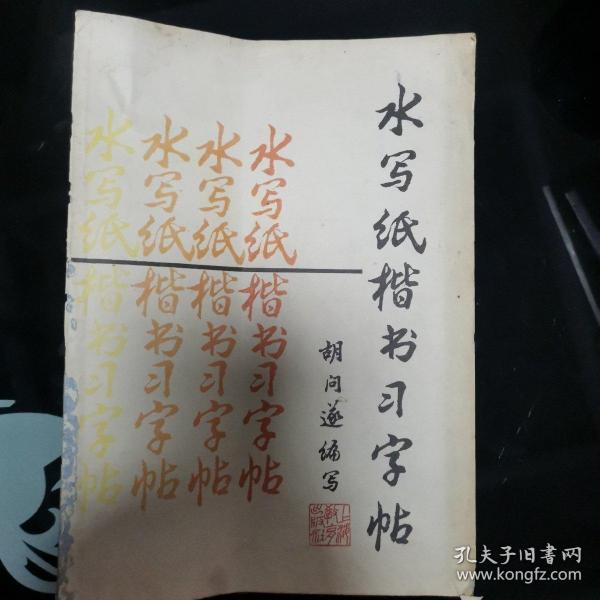 水写纸楷书习字帖
胡问遂编写
上海教育出版社
水写纸楷书习字帖
水写纸楷书习字帖
水写纸楷书习字帖
水写纸楷书习字帖
孔夫子旧书网
www.kongfz.com